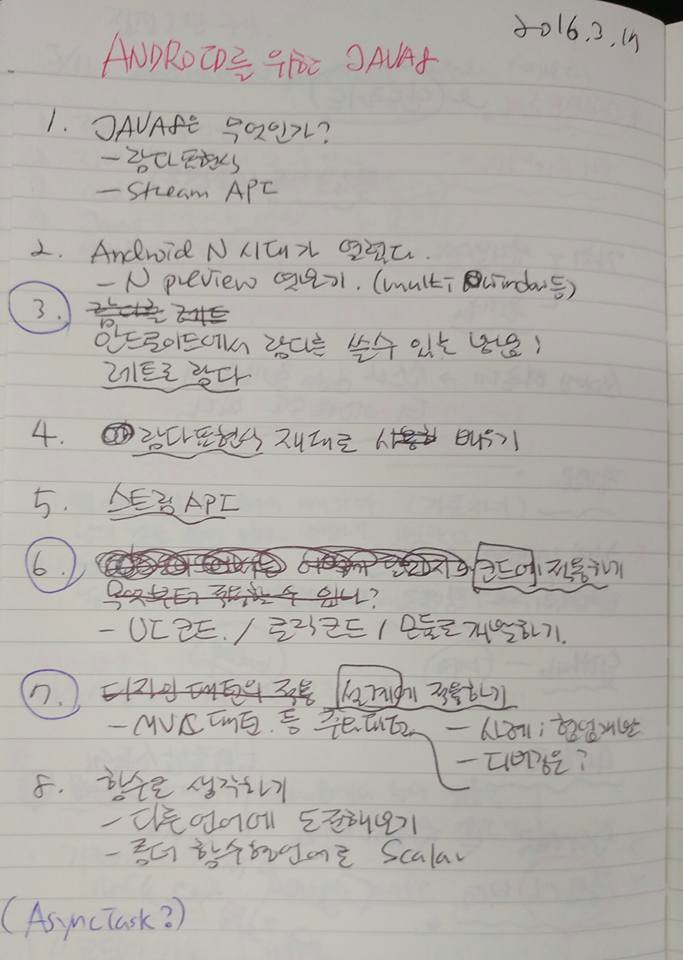 2016.3.17
ANDROID를 위한 JAVA8
1. JAVA8은 무엇인가?
- 람다표현식
- Stream API
2. Android N 시대가 열렸다.
- N preview 엿보기. (multi window등)
3. 람다를 레트
안드로이드에서 람다를 쓸수 있는 방법;
레트로 람다
4. 람다표현식 제대로 사용한 배우기
5. 스트림 API
6. 코드에 적용하기
무엇부터 적용할 수 있나?
- UI 코드. / 로직코드 / 모듈로 개발하기.
7. 디자인 패턴의 적용 설계에 적용하기
- MVC 패턴. 등 - 사례; 협업개발
- 디버깅은?
8. 함수로 생각하기
- 다른언어에 도전해보기
- 좀더 함수형언어로 Scala
(AsyncTask?)